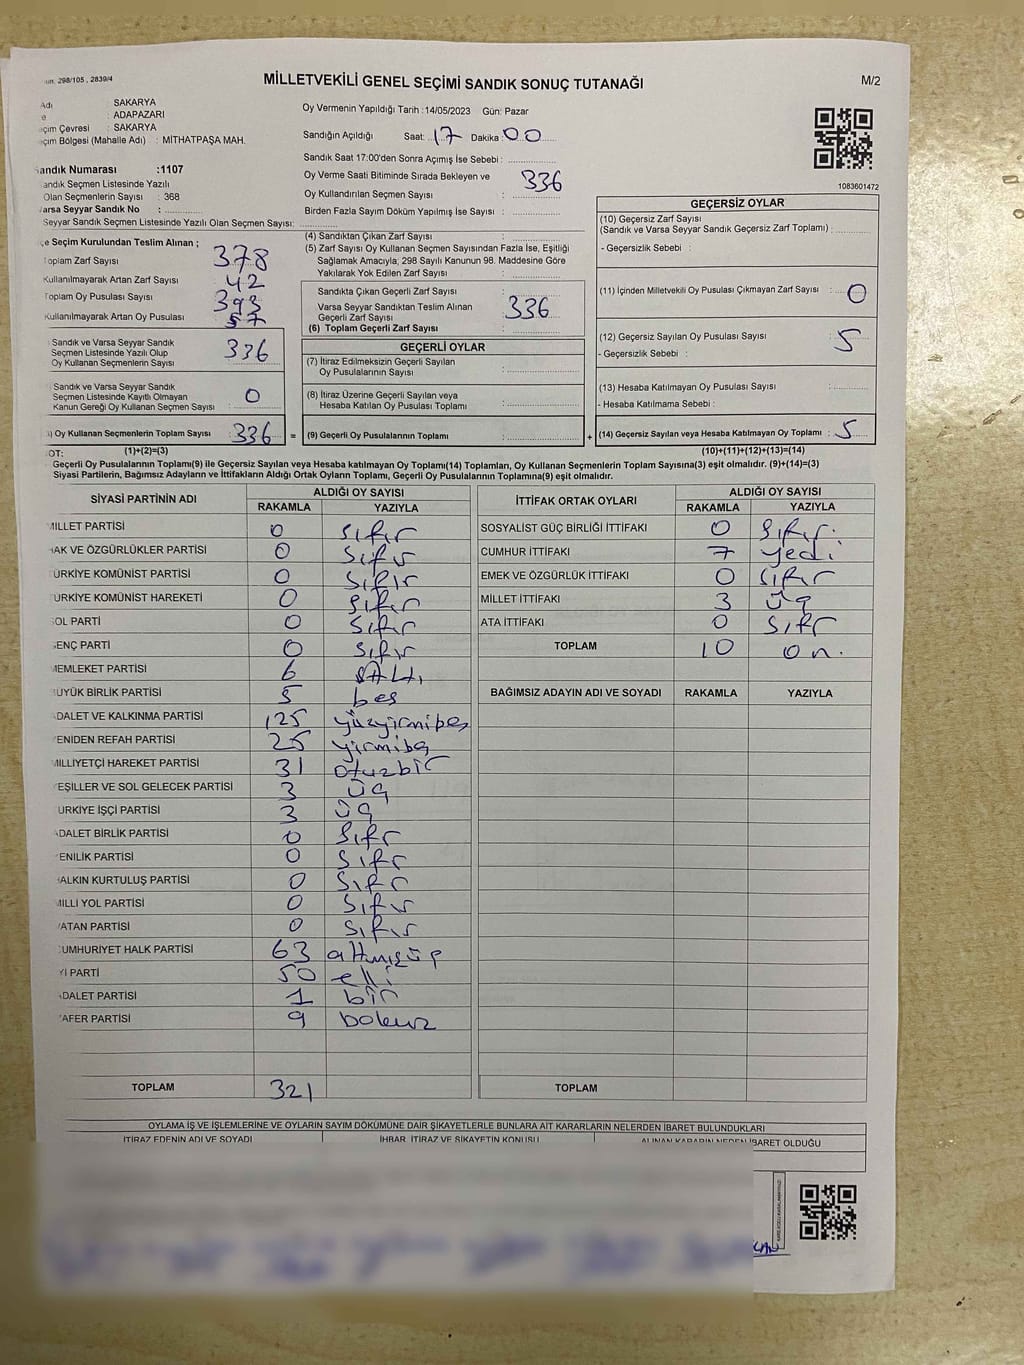 298/105 , 2839/4
MİLLETVEKİLİ GENEL SEÇİMİ SANDIK SONUÇ TUTANAĞI
M/2
Adı : SAKARYA
e : ADAPAZARI
çim Çevresi : SAKARYA
çim Bölgesi (Mahalle Adı) : MİTHATPAŞA MAH.
Oy Vermenin Yapıldığı Tarih : 14/05/2023 Gün: Pazar
Sandığın Açıldığı Saat: 17 Dakika: 00
Sandık Saat 17:00'den Sonra Açımış İse Sebebi :
Oy Verme Saati Bitiminde Sırada Bekleyen ve
Oy Kullandırılan Seçmen Sayısı : 336
Birden Fazla Sayım Döküm Yapılmış İse Sayısı :
1083601472
andık Numarası :1107
andık Seçmen Listesinde Yazılı
Olan Seçmenlerin Sayısı : 368
Varsa Seyyar Sandık No :
Seyyar Sandık Seçmen Listesinde Yazılı Olan Seçmen Sayısı:
çe Seçim Kurulundan Teslim Alınan ;
Toplam Zarf Sayısı : 378
Kullanılmayarak Artan Zarf Sayısı : 42
Toplam Oy Pusulası Sayısı : 393
Kullanılmayarak Artan Oy Pusulası : 57
Sandık ve Varsa Seyyar Sandık
Seçmen Listesinde Yazılı Olup
Oy Kullanan Seçmenlerin Sayısı : 336
Sandık ve Varsa Seyyar Sandık
Seçmen Listesinde Kayıtlı Olmayan
Kanun Gereği Oy Kullanan Seçmen Sayısı : 0
) Oy Kullanan Seçmenlerin Toplam Sayısı : 336
(4) Sandıktan Çıkan Zarf Sayısı :
(5) Zarf Sayısı Oy Kullanan Seçmen Sayısından Fazla İse, Eşitliği
Sağlamak Amacıyla; 298 Sayılı Kanunun 98. Maddesine Göre
Yakılarak Yok Edilen Zarf Sayısı :
Sandıkta Çıkan Geçerli Zarf Sayısı :
Varsa Seyyar Sandıktan Teslim Alınan
Geçerli Zarf Sayısı : 336
(6) Toplam Geçerli Zarf Sayısı :
GEÇERLİ OYLAR
(7) İtiraz Edilmeksizin Geçerli Sayılan
Oy Pusulalarının Sayısı :
(8) İtiraz Üzerine Geçerli Sayılan veya
Hesaba Katılan Oy Pusulası Toplamı :
= (9) Geçerli Oy Pusulalarının Toplamı :
GEÇERSİZ OYLAR
(10) Geçersiz Zarf Sayısı
(Sandık ve Varsa Seyyar Sandık Geçersiz Zarf Toplamı) :
- Geçersizlik Sebebi :
(11) İçinden Milletvekili Oy Pusulası Çıkmayan Zarf Sayısı : 0
(12) Geçersiz Sayılan Oy Pusulası Sayısı : 5
- Geçersizlik Sebebi :
(13) Hesaba Katılmayan Oy Pusulası Sayısı :
- Hesaba Katılmama Sebebi :
+ (14) Geçersiz Sayılan veya Hesaba Katılmayan Oy Toplamı : 5
OT: (1)+(2)=(3) (10)+(11)+(12)+(13)=(14)
Geçerli Oy Pusulalarının Toplamı(9) ile Geçersiz Sayılan veya Hesaba katılmayan Oy Toplamı(14) Toplamları, Oy Kullanan Seçmenlerin Toplam Sayısına(3) eşit olmalıdır. (9)+(14)=(3)
Siyasi Partilerin, Bağımsız Adayların ve İttifakların Aldığı Ortak Oyların Toplamı, Geçerli Oy Pusulalarının Toplamına(9) eşit olmalıdır.
SİYASİ PARTİNİN ADI ALDIĞI OY SAYISI
RAKAMLA YAZIYLA
MİLLET PARTİSİ 0 sıfır
AK VE ÖZGÜRLÜKLER PARTİSİ 0 sıfır
ÜRKİYE KOMÜNİST PARTİSİ 0 sıfır
ÜRKİYE KOMÜNİST HAREKETİ 0 sıfır
OL PARTİ 0 sıfır
ENÇ PARTİ 0 sıfır
MEMLEKET PARTİSİ 6 Altı
ÜYÜK BİRLİK PARTİSİ 5 beş
DALET VE KALKINMA PARTİSİ 125 yüzyirmibeş
ENİDEN REFAH PARTİSİ 25 yirmibeş
MİLLİYETÇİ HAREKET PARTİSİ 31 otuzbir
EŞİLLER VE SOL GELECEK PARTİSİ 3 üç
ÜRKİYE İŞÇİ PARTİSİ 3 üç
ADALET BİRLİK PARTİSİ 0 sıfır
YENİLİK PARTİSİ 0 sıfır
HALKIN KURTULUŞ PARTİSİ 0 sıfır
MİLLİ YOL PARTİSİ 0 sıfır
VATAN PARTİSİ 0 sıfır
CUMHURİYET HALK PARTİSİ 63 altmışüç
Yİ PARTİ 50 elli
ADALET PARTİSİ 1 bir
ZAFER PARTİSİ 9 dokuz
TOPLAM 321
İTTİFAK ORTAK OYLARI ALDIĞI OY SAYISI
RAKAMLA YAZIYLA
SOSYALİST GÜÇ BİRLİĞİ İTTİFAKI 0 sıfır.
CUMHUR İTTİFAKI 7 yedi
EMEK VE ÖZGÜRLÜK İTTİFAKI 0 sıfır
MİLLET İTTİFAKI 3 üç
ATA İTTİFAKI 0 sıfr
TOPLAM 10 on.
BAĞIMSIZ ADAYIN ADI VE SOYADI RAKAMLA YAZIYLA
TOPLAM
OYLAMA İŞ VE İŞLEMLERİNE VE OYLARIN SAYIM DÖKÜMÜNE DAİR ŞİKAYETLERLE BUNLARA AİT KARARLARIN NELERDEN İBARET BULUNDUKLARI
İTİRAZ EDENİN ADI VE SOYADI İHBAR, İTİRAZ VE ŞİKAYETİN KONUSU ALINAN KARARIN NEDEN İBARET OLDUĞU